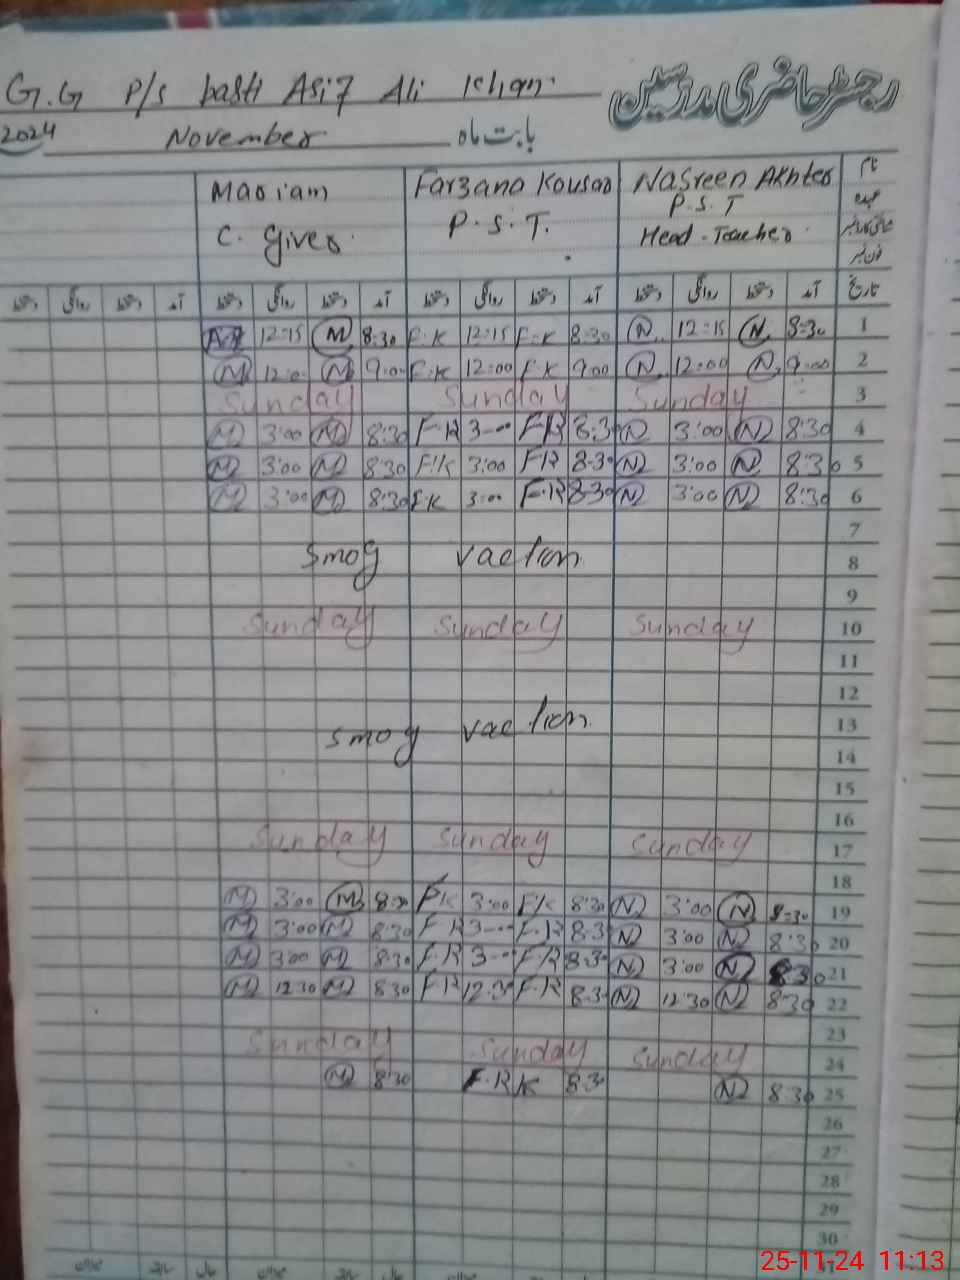 G.G P/S basti Asif Ali Khan رجسٹر حاضری مدرسین
2024 November بابت ماہ
Mariam Farzana Kousar Nasreen Akhter نام
C. Giver P.S.T. P.S.T عہدہ
Head-Teacher
دستخط روانگی دستخط آمد دستخط روانگی دستخط آمد دستخط روانگی دستخط آمد دستخط روانگی دستخط آمد تاریخ
12:15 M 8:30 F.K 12:15 F.K 8:30 N 12:15 N 8:30 1
M 12:0 M 9:00 F.K 12:00 F.K 9:00 N 12:00 N 9:00 2
Sunday Sunday Sunday 3
M 3:00 M 8:30 F.K 3-- F.K 8:30 N 3:00 N 8:30 4
M 3:00 M 8:30 F.K 3:00 F.K 8:30 N 3:00 N 8:30 5
M 3:00 M 8:30 F.K 3:00 F.K 8:30 N 3:00 N 8:30 6
7
Smog vaction 8
9
Sunday Sunday Sunday 10
11
12
Smog vaction 13
14
15
16
Sunday Sunday Sunday 17
18
M 3:00 M 8:30 F.K 3:00 F.K 8:30 N 3:00 N 8:30 19
M 3:00 M 8:30 F.K 3-- F.K 8:3 N 3:00 N 8:30 20
M 3:00 M 8:30 F.K 3-- F.K 8:3 N 3:00 N 8:30 21
M 12:30 M 830 F.K 12:3 F.K 8:3 N 12:30 N 8:30 22
23
Sunday Sunday Sunday 24
M 8:30 8:30 N 8:30 25
26
27
28
29
30
25-11-24 11:13